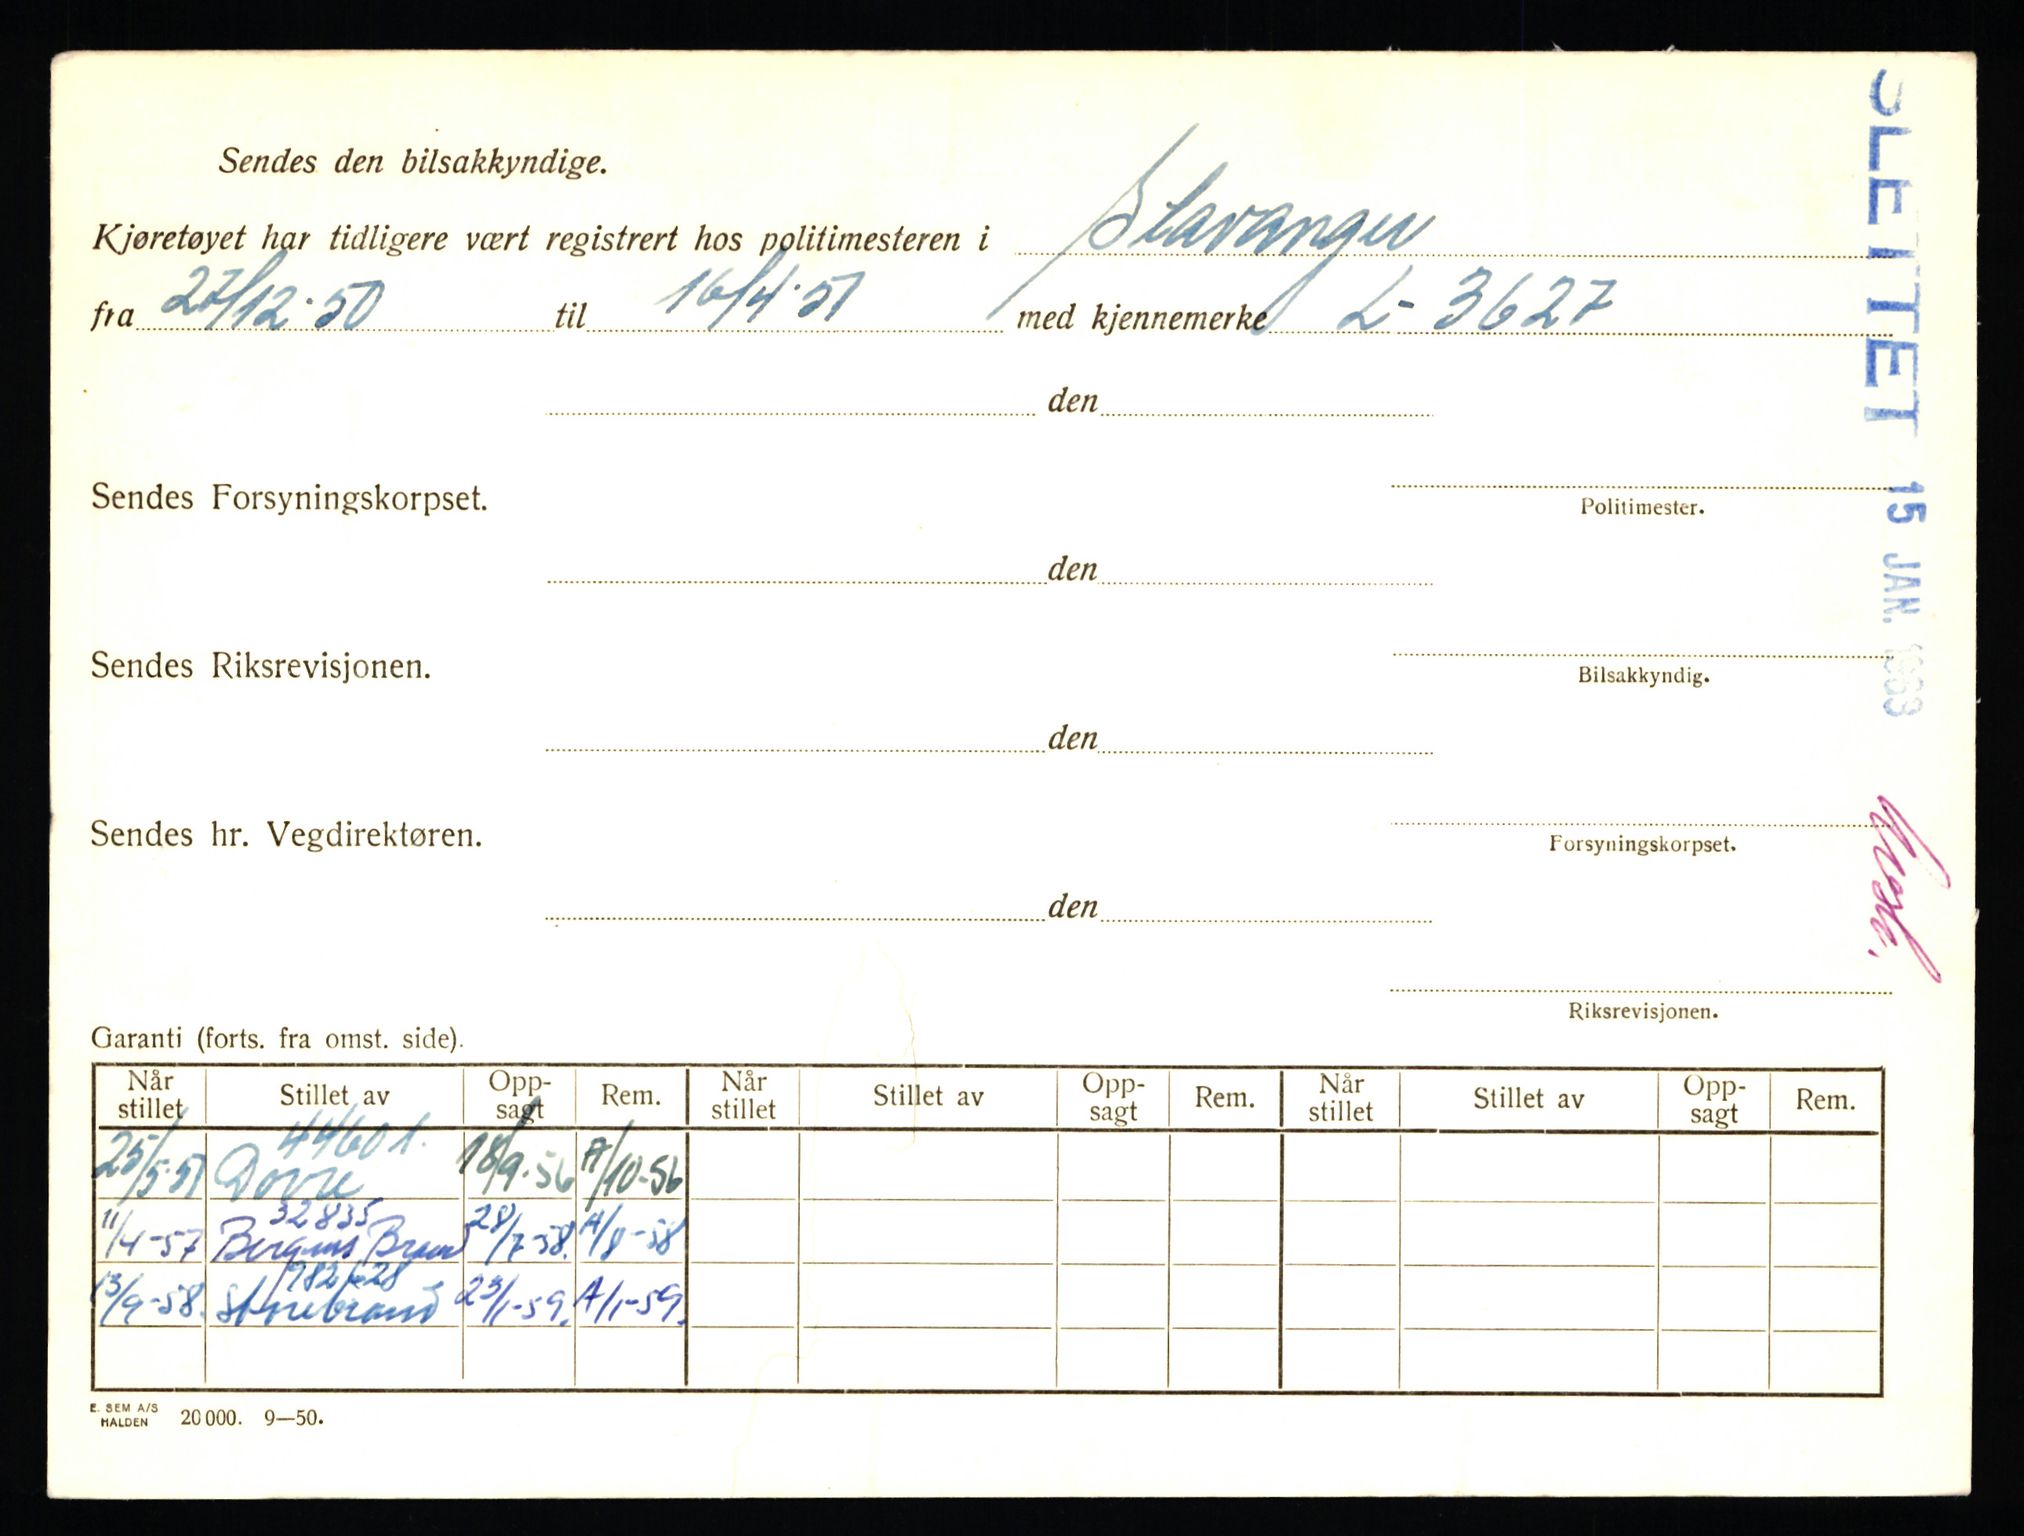 Sendes den bilsakkyndige.
Kjøretøyet har tidligere vært registrert hos politimesteren i Stavanger
fra 27/12-50 til 16/4-51 med kjennemerke L-3627
den
Sendes Forsyningskorpset.
Politimester.
den
Sendes Riksrevisjonen.
Bilsakkyndig.
den
Sendes hr. Vegdirektøren.
Forsyningskorpset.
den
Riksrevisjonen.
Garanti (forts. fra omst. side).
Når stillet Stillet av Opp-sagt Rem. Når stillet Stillet av Opp-sagt Rem. Når stillet Stillet av Opp-sagt Rem.
44601.
25/5-51 Dovre 18/9-56 A/10-56
32835
11/4-57 Bergens Brand 28/7-58. A/8-58
13/9-58. Storebrand 23/1-59. A/1-59.
E. SEM A/S
HALDEN 20000. 9—50.
SLETTET 15 JAN. 1963